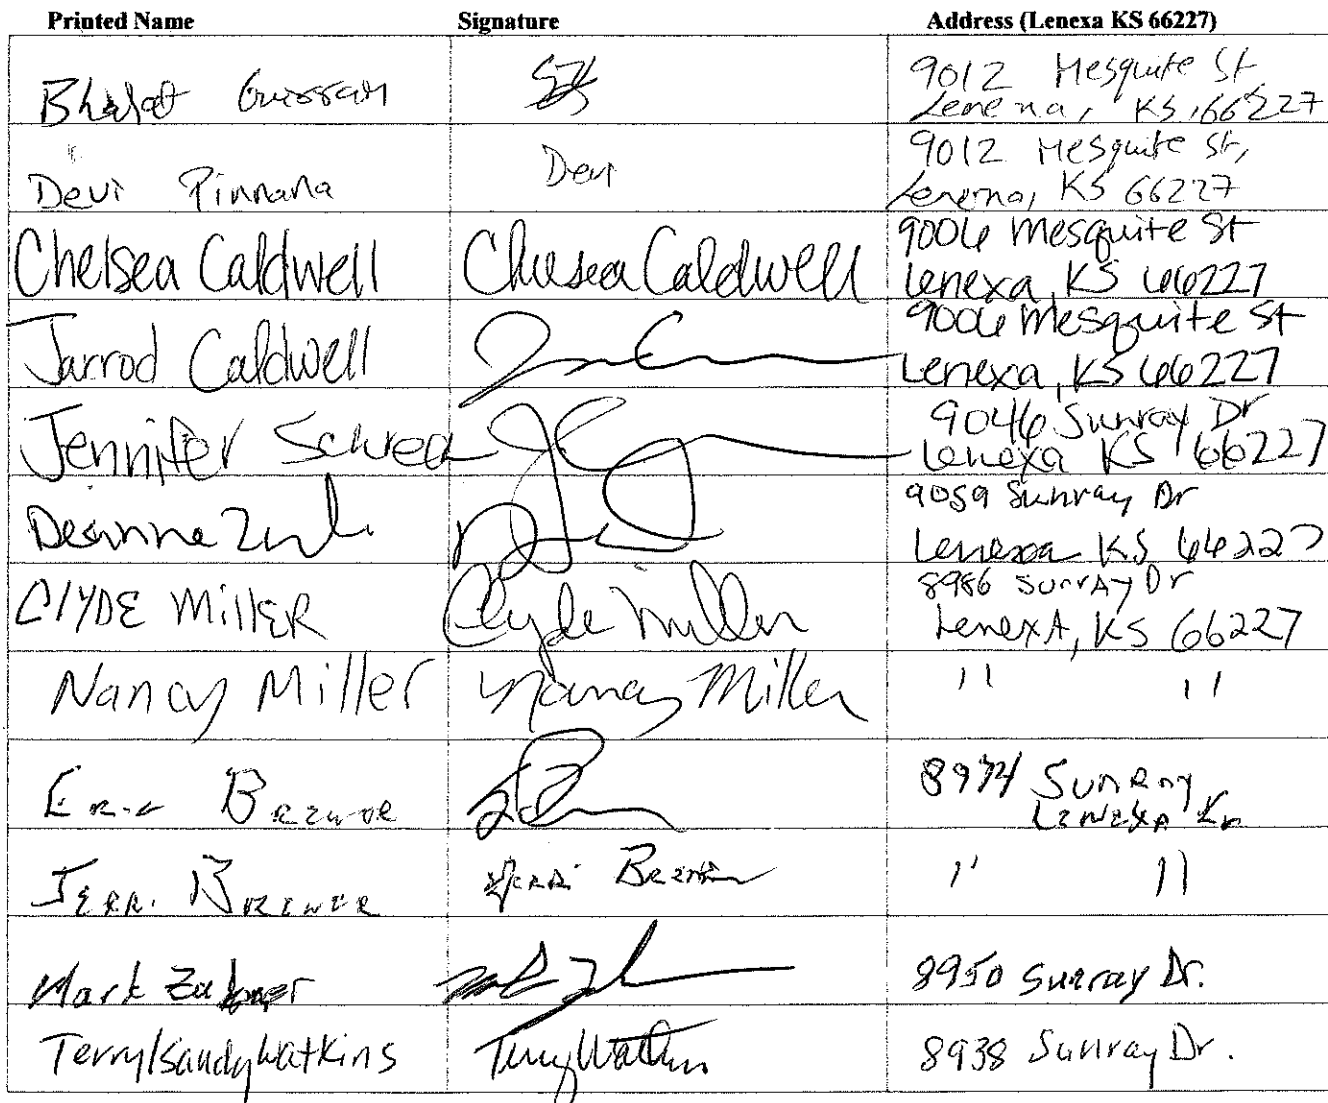 Printed Name Signature Address (Lenexa KS 66227)
Bharat 9012 Mesquite St
Lenexa, KS, 66227
Devi Pinnana Devi 9012 Mesquite St,
Lenexa, KS 66227
Chelsea Caldwell Chelsea Caldwell 9006 Mesquite St
Lenexa, KS 66227
Jarrod Caldwell 9006 Mesquite St
Lenexa, KS 66227
Jennifer 9046 Sunray Dr
Lenexa KS 66227
Deanna 9059 Sunray Dr
Lenexa KS 66227
CLYDE MILLER Clyde Miller 8986 Sunray Dr
Lenexa, KS 66227
Nancy Miller Nancy Miller " "
Eric Brewer 8974 Sunray
Lenexa Ks
Jerri Brewer Jerri Brewer " "
Mark 8950 Sunray Dr.
Terry/Sandy Watkins Terry Watkins 8938 Sunray Dr.